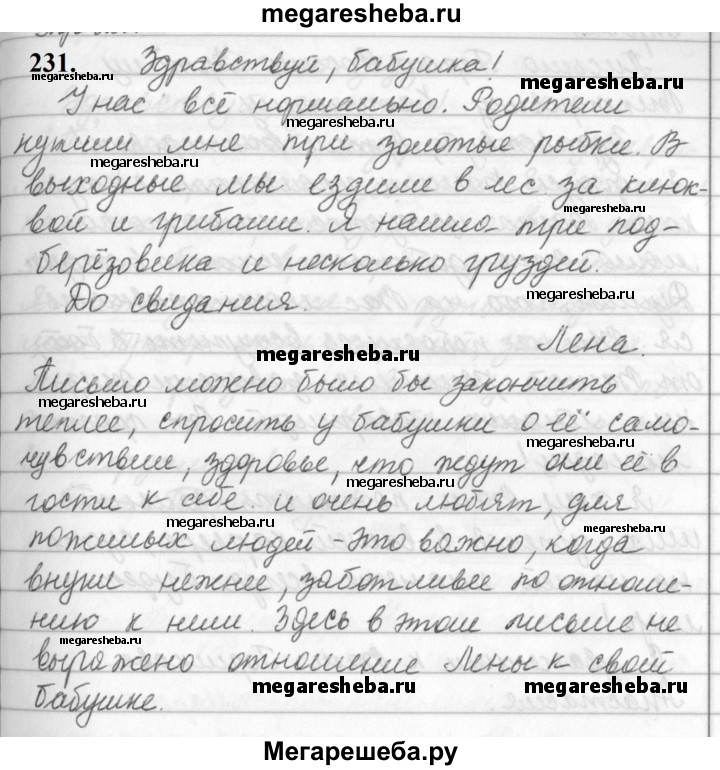 megaresheba.ru
231. Здравствуй, бабушка!
megaresheba.ru
megaresheba.ru
У нас всё нормально. Родители
megaresheba.ru
купили мне три золотые рыбки. В
megaresheba.ru
выходные мы ездили в лес за клюк-
megaresheba.ru
вой и грибами. Я нашла три под-
берёзовика и несколько груздей.
megaresheba.ru
До свидания.
Лена.
megaresheba.ru
Письмо можно было бы закончить
megaresheba.ru
теплее, спросить у бабушки о её само-
megaresheba.ru
чувствии, здоровье, что ждут они её в
megaresheba.ru
гости к себе и очень любят, для
megaresheba.ru
megaresheba.ru
пожилых людей - это важно, когда
внуки нежнее, заботливее по отноше-
нию к ним. Здесь в этом письме не
megaresheba.ru
выражено отношение Лены к свой
megaresheba.ru
megaresheba.ru
бабушке.
Мегарешеба.ру